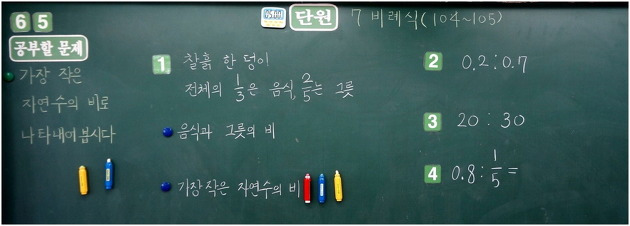 6 5
단원 7 비례식(104~105)
공부할 문제
가장 작은
자연수의 비로
나타내어 봅시다
1 찰흙 한 덩이
전체의 1/3은 음식, 2/5는 그릇
음식과 그릇의 비
가장 작은 자연수의 비
2 0.2 : 0.7
3 20 : 30
4 0.8 : 1/5 =